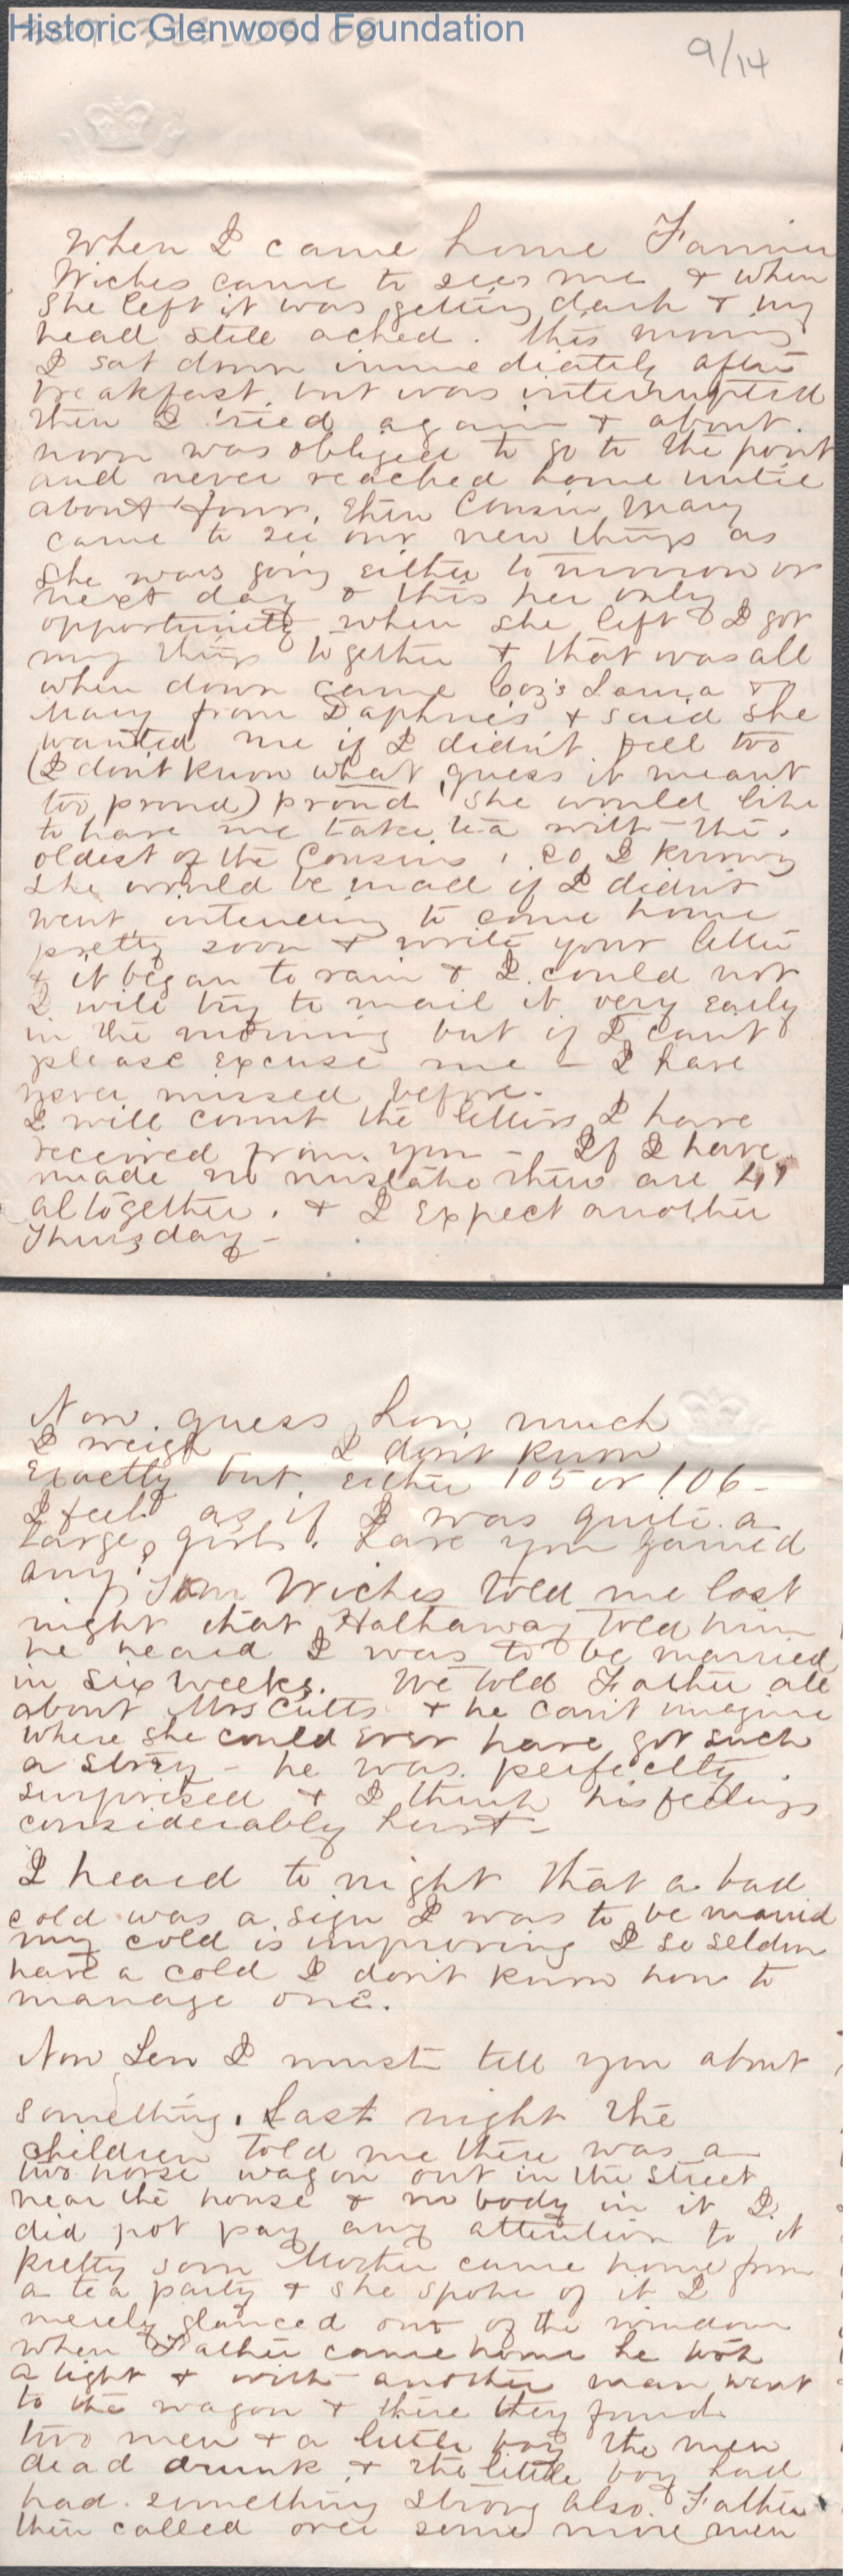 Historic Glenwood Foundation
9/14
When I came home Fannie
Wiches came to see me & when
She left it was getting dark & my
head still ached. This morning
I sat down immediately after
breakfast, but was interrupted
then I tried again & about
noon was obliged to go to the point
and never reached home until
about four, then Cousin Mary
came to see our new things as
she was going either tomorrow or
next day & this her only
opportunity when she left I got
my things together & that was all
when down came Coz's Laura &
Mary from Daphne's & said she
wanted me if I didn't feel too
(I don't know what, guess it meant
too proud) proud she would like
to have me take tea with the
oldest of the Cousins, so I knowing
she would be mad if I didn't
went intending to come home
pretty soon & write your letter
& it began to rain & I could not
I will try to mail it very early
in the morning but if I can't
please excuse me – I have
never missed before.
I will count the letters I have
received from you – If I have
made no mistake there are 41
altogether. & I expect another
Thursday –
Now guess how much
I weigh I don't know
exactly but either 105 or 106 –
I feel as if I was quite a
large girl. Have you gained
any? Tom Wiches told me last
night that Hathaway told him
he heard I was to be married
in six weeks. We told Father all
about Mrs Cutts & he can't imagine
where she could ever have got such
a story – he was perfectly
surprised & I think his feelings
considerably hurt –
I heard to night that a bad
cold was a sign I was to be married
my cold is improving I so seldom
have a cold I don't know how to
manage one.
Now Len I must tell you about
something. Last night the
children told me there was a
two horse wagon out in the street
near the house & no body in it I
did not pay any attention to it
pretty soon Mother came home from
a tea party & she spoke of it I
merely glanced out of the window
when Father came home he took
a light & with another man went
to the wagon & there they found
two men & a little boy the men
dead drunk & the little boy had
had something strong also. Father
then called over some more men